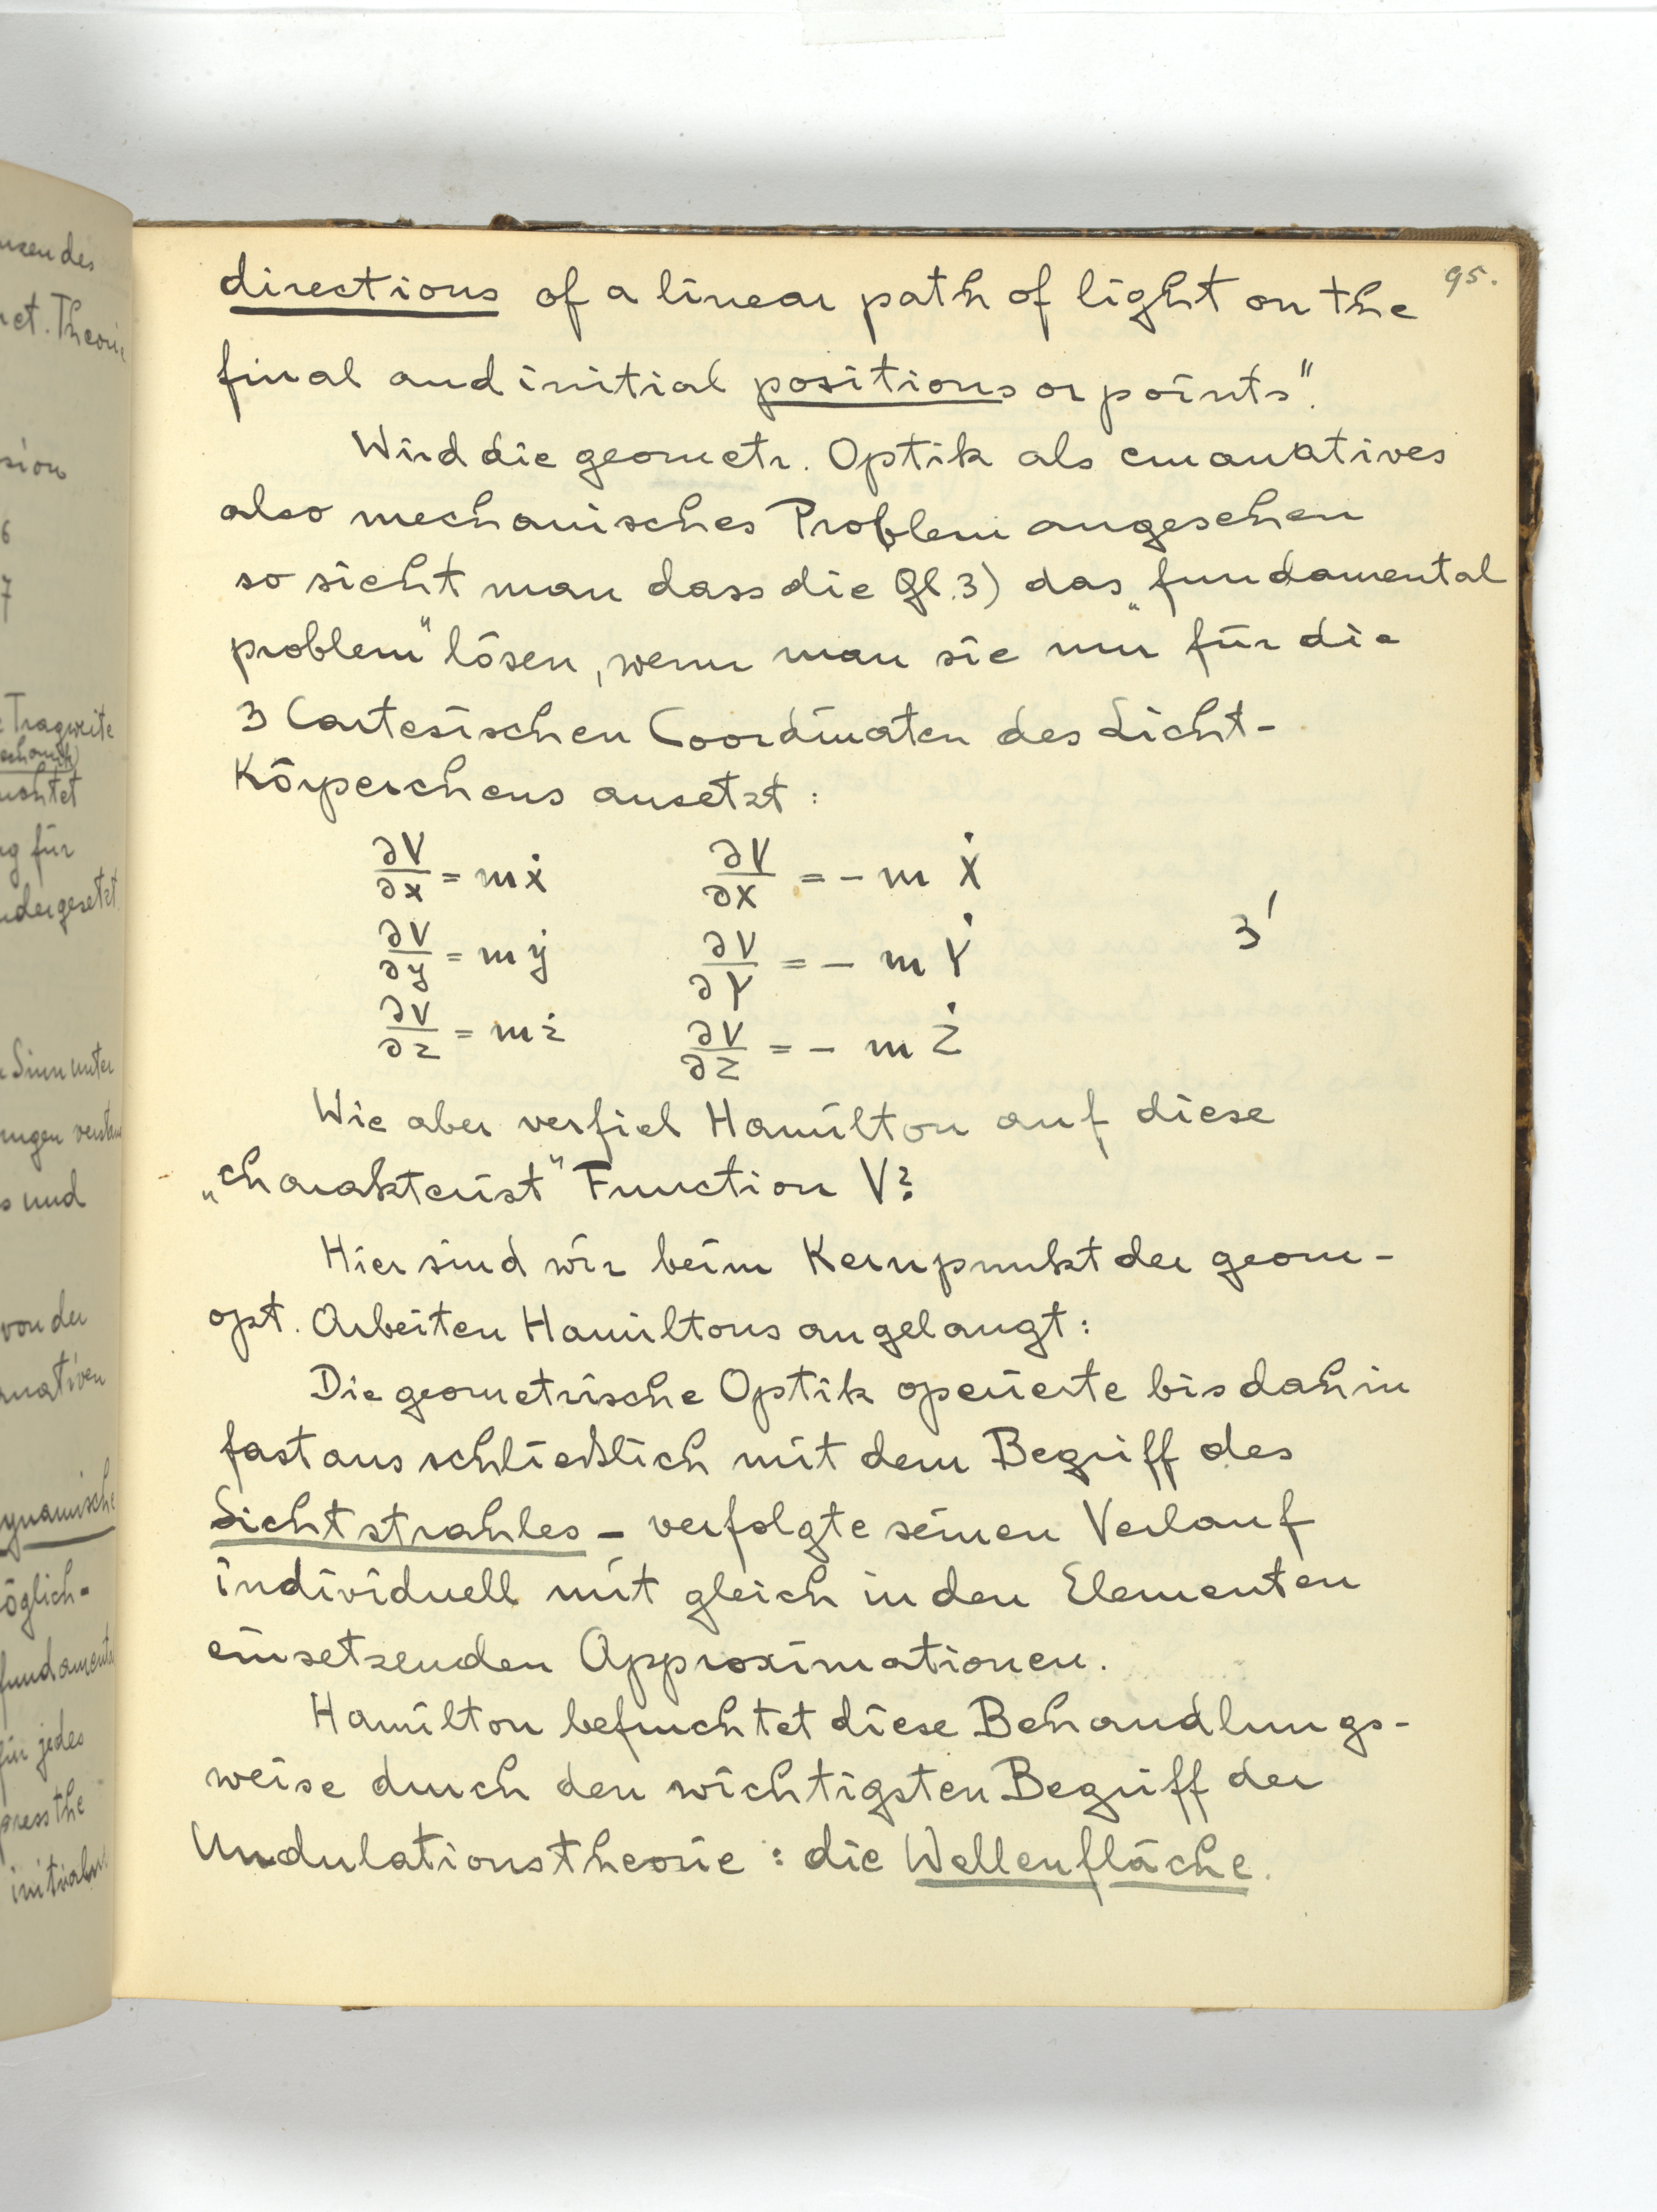 95.
directions of a linear path of light on the
final and initial positions or points".
Wird die geometr. Optik als emanatives
also mechanisches Problem angesehen
so sieht man dass die Gl. 3) das „fundamental
problem" lösen, wenn man sie nur für die
3 Cartesischen Coordinaten des Licht-
Körperchens ansetzt :
∂V/∂x = mẋ ∂V/∂X = - m Ẋ
∂V/∂y = mẏ ∂V/∂Y = - m Ẏ 3'
∂V/∂z = mż ∂V/∂Z = - m Ż
Wie aber verfiel Hamilton auf diese
„charakterist" Function V?
Hier sind wir beim Kernpunkt der geom-
opt. Arbeiten Hamiltons angelangt :
Die geometrische Optik operierte bis dahin
fast ausschließlich mit dem Begriff des
Lichtstrahles - verfolgte seinen Verlauf
individuell mit gleich in den Elementen
einsetzenden Approximationen.
Hamilton befruchtet diese Behandlungs-
weise durch den wichtigsten Begriff der
Undulationstheorie : die Wellenfläche.